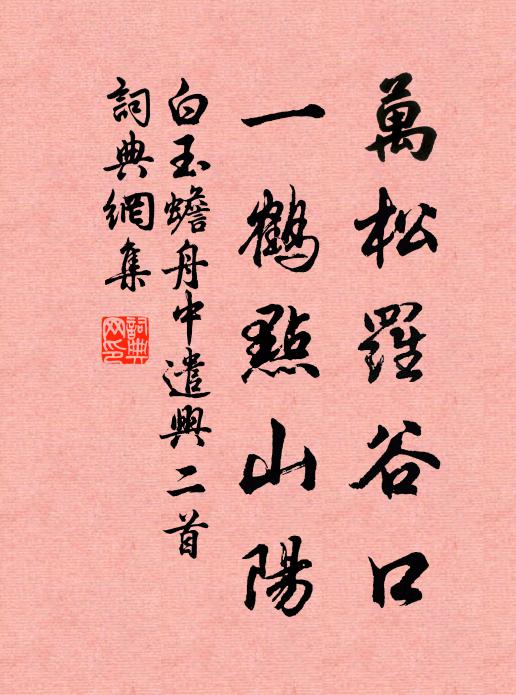 萬松羅谷口
一鶴點山陽
白玉蟾舟中遣興二首
詞典網集
詞典网印